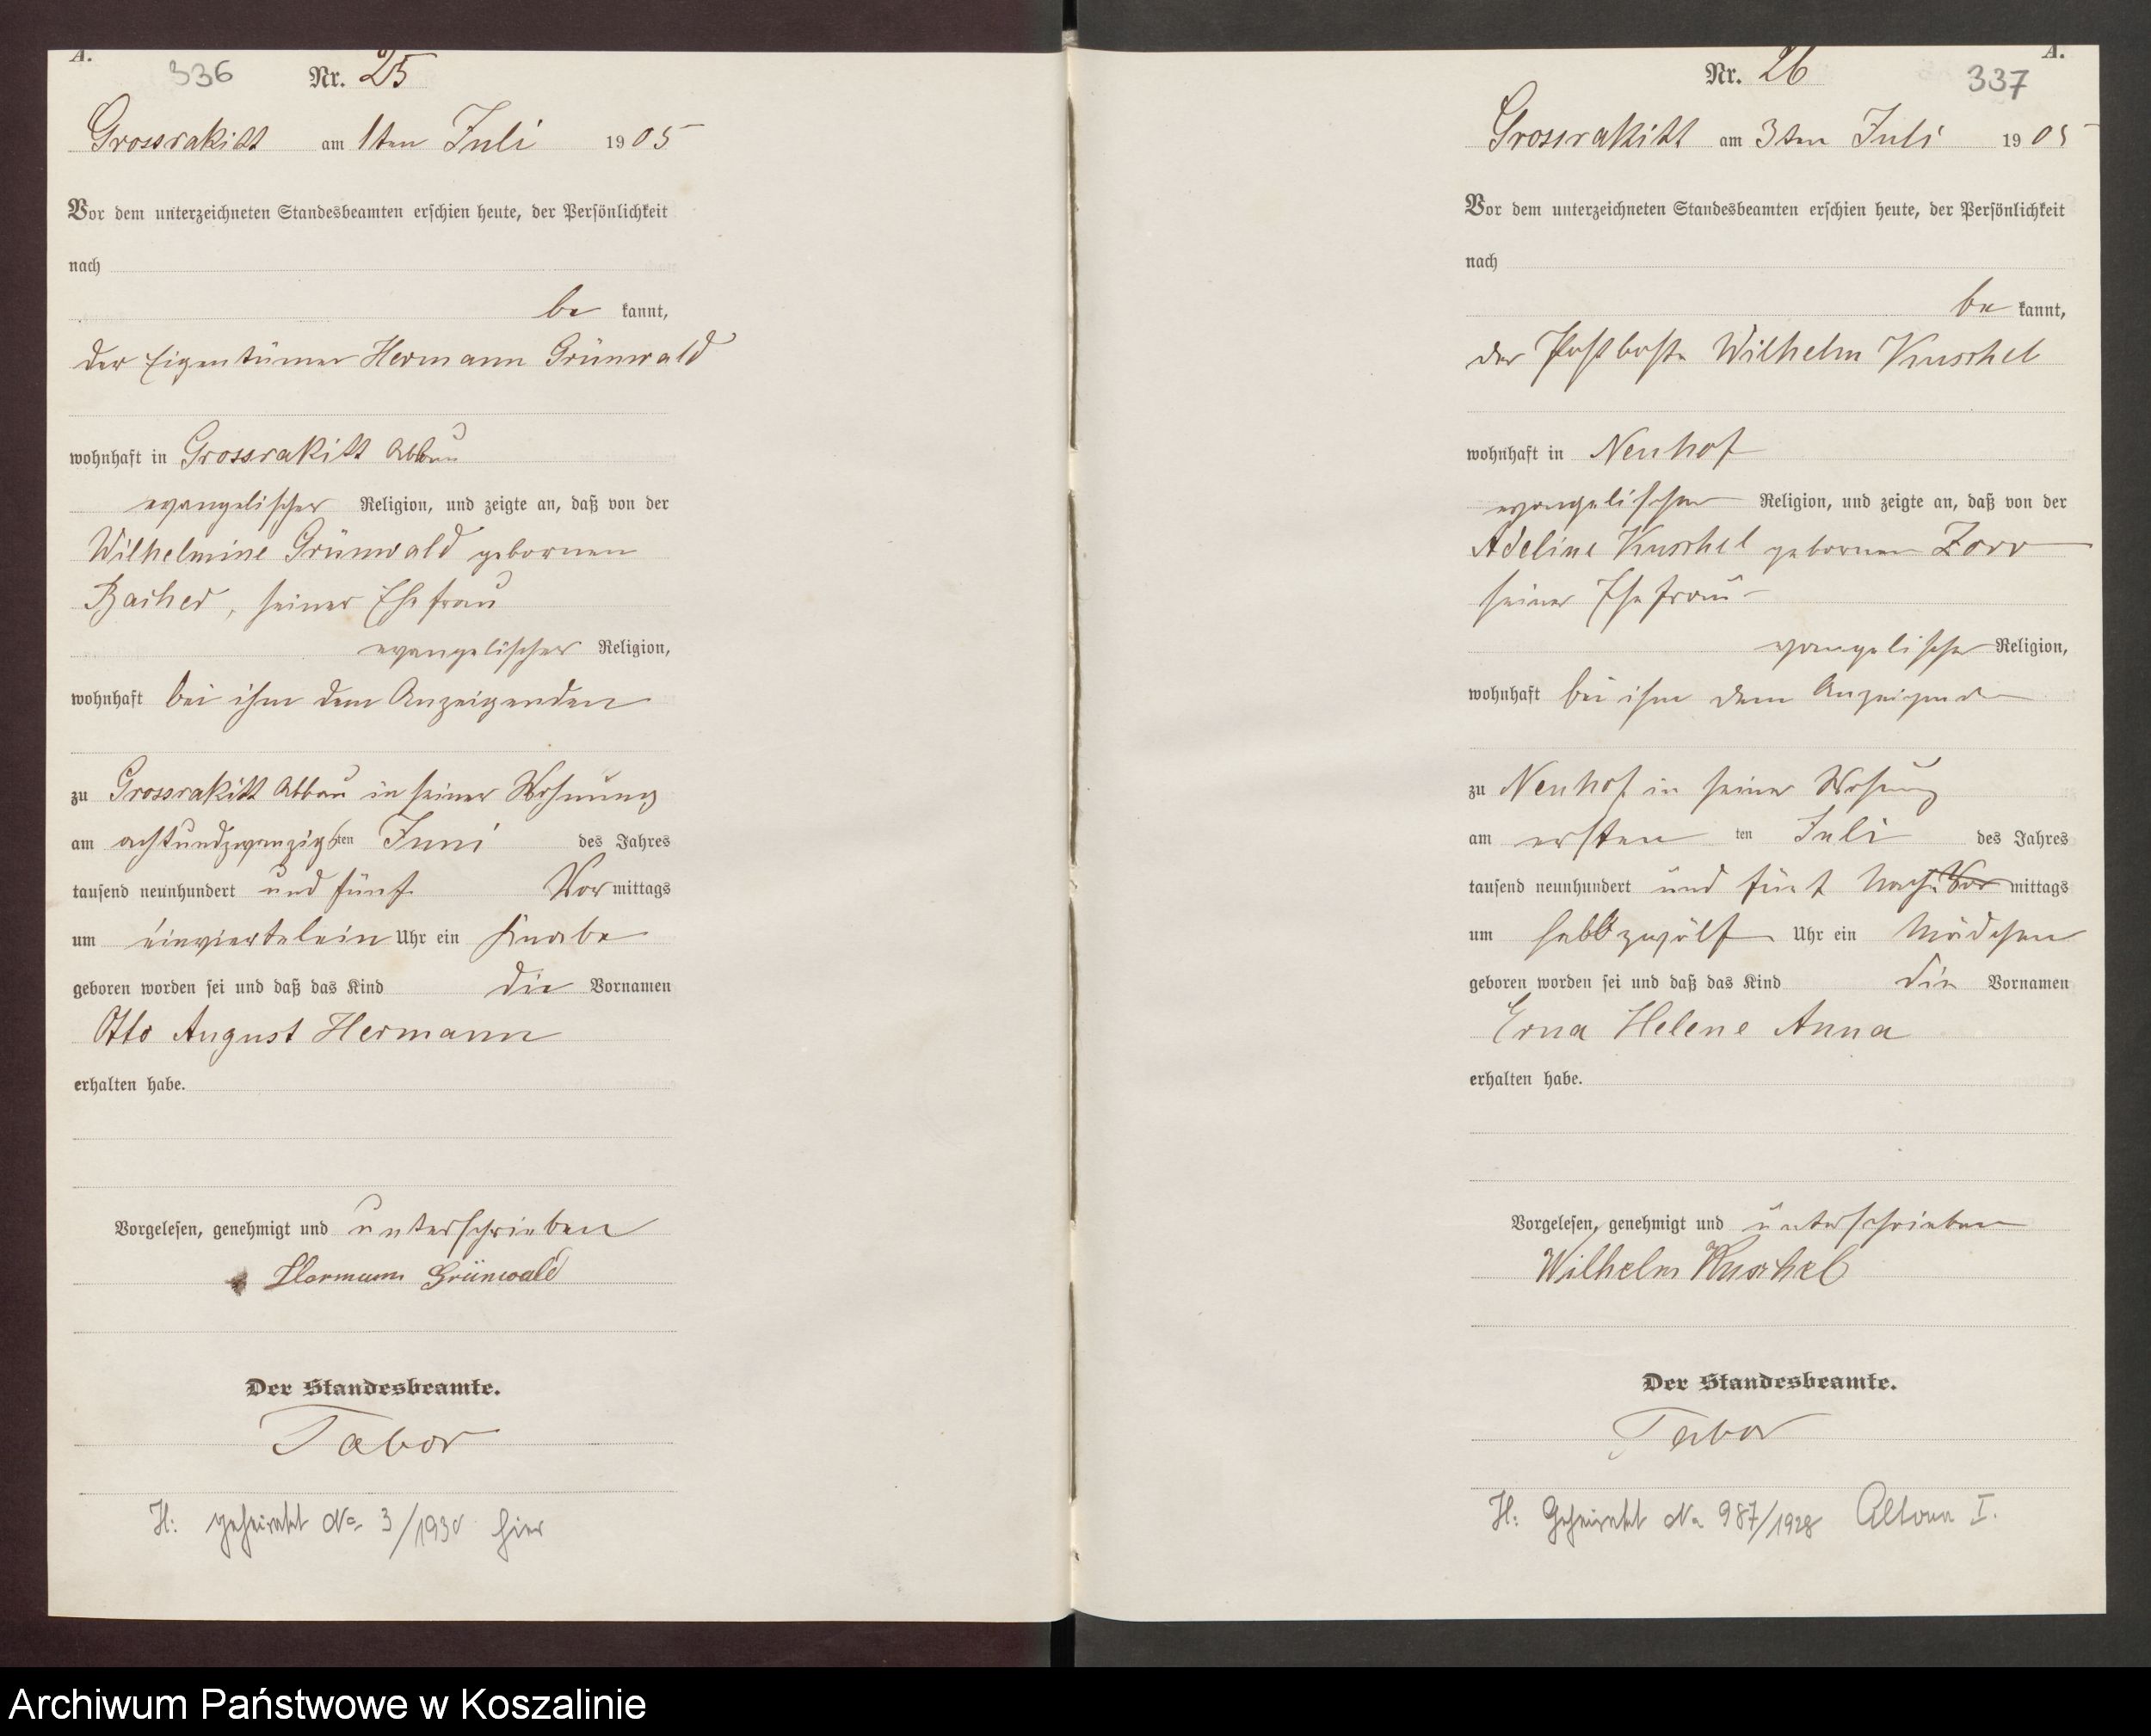 A.
336 Nr. 25
Grossrakitt am 1ten Juli 1905
Vor dem unterzeichneten Standesbeamten erschien heute, der Persönlichkeit
nach
be kannt,
der Eigentümer Hermann Grünwald
wohnhaft in Grossrakitt Abbau
evangelischer Religion, und zeigte an, daß von der
Wilhelmine Grünwald gebornen
, seiner Ehefrau
evangelischer Religion,
wohnhaft bei ihm dem Anzeigenden
zu Grossrakitt Abbau in seiner Wohnung
am achtundzwanzigsten Juni des Jahres
tausend neunhundert und fünf Vor mittags
um einviertelein Uhr ein Knabe
geboren worden sei und daß das Kind die Vornamen
Otto August Hermann
erhalten habe.
Vorgelesen, genehmigt und unterschrieben
Hermann Grünwald
Der Standesbeamte.
Tabor
H: geheiratet No. 3/1930 hier
A.
Nr. 26 337
Grossrakitt am 3ten Juli 1905
Vor dem unterzeichneten Standesbeamten erschien heute, der Persönlichkeit
nach
be kannt,
der Postbote Wilhelm Kuschel
wohnhaft in Neuhof
evangelischer Religion, und zeigte an, daß von der
Adeline Kuschel gebornen Zorr
seiner Ehefrau
evangelischer Religion,
wohnhaft bei ihm dem Anzeigenden
zu Neuhof in seiner Wohnung
am ersten ten Juli des Jahres
tausend neunhundert und fünf Nach Vor mittags
um halbzwölf Uhr ein Mädchen
geboren worden sei und daß das Kind die Vornamen
Erna Helene Anna
erhalten habe.
Vorgelesen, genehmigt und unterschrieben
Wilhelm Kuschel
Der Standesbeamte.
Tabor
H: Geheiratet No 987/1928 Altona I.
Archiwum Państwowe w Koszalinie